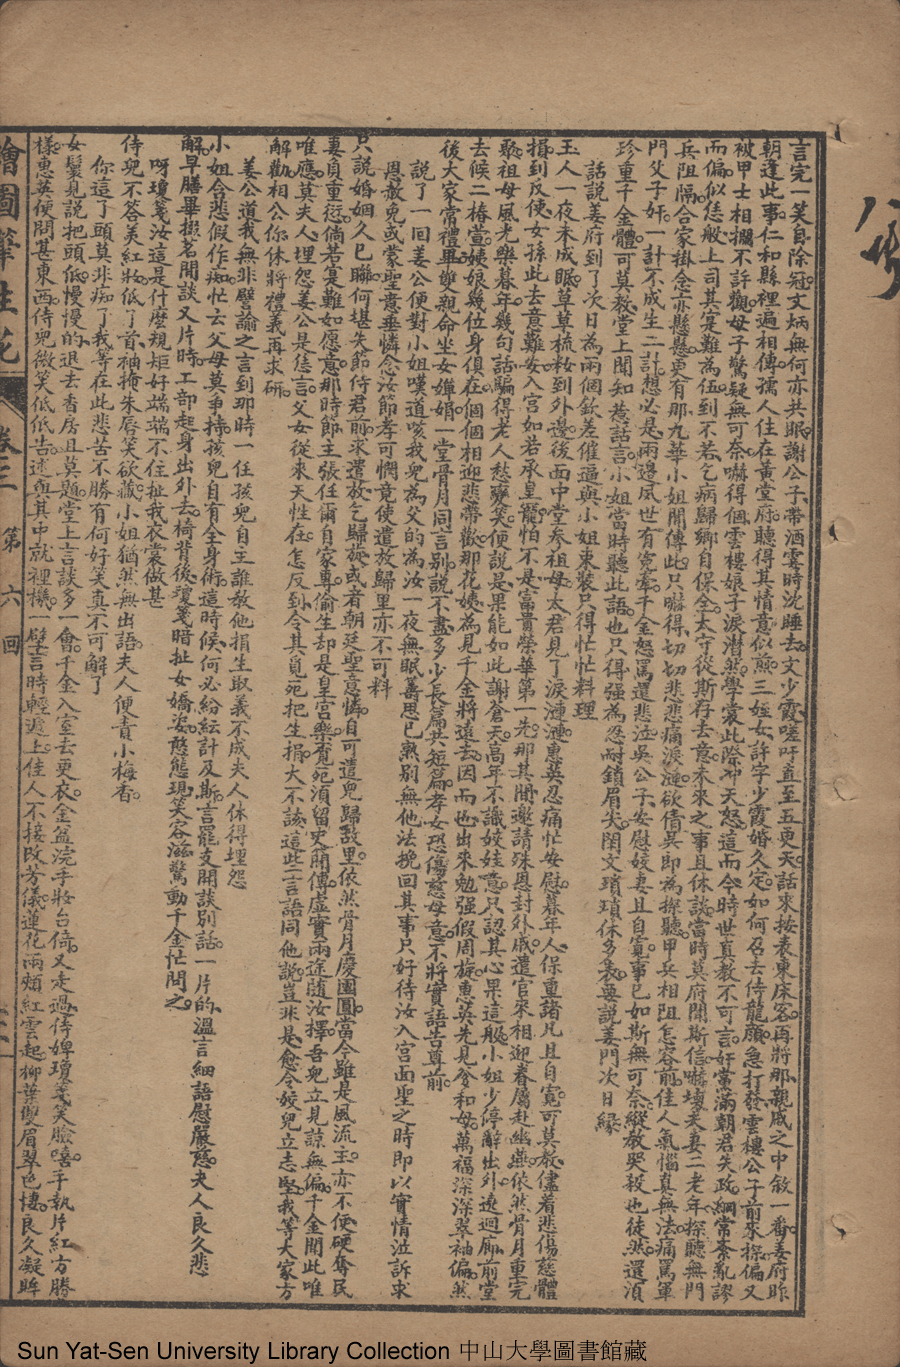 言完一笑自除冠文炳無何亦共眠謝公子帶酒霎時沈睡去文少霞嗟吁直至五更天話來按表東床客再將那親戚之中敘一番姜府昨
朝逢此事仁和縣裡遍相傳孺人住在黃堂府聽得其情意似煎三姪女許字少霞婚久定如何召去侍龍顏急打發雲樓公子前來探偏又
被甲士相攔不許觀母子驚疑無可奈嚇得個雲樓娘子淚潸然學裳此際冲天怒這而今時世真教不可言奸黨滿朝君失政綱常紊亂謬
而偏似恁般上司其寔難為伍到不若乞病歸鄉自保全太守從斯存去意未來之事且休談當時莫府聞斯信嚇壞夫妻二老年探聽無門
兵阻隔合家掛念亦懸懸更有那九華小姐聞傳此只嚇得切切悲悲痛淚漣欲倩吳郎為探聽甲兵相阻怎容前佳人氣惱真無法痛罵軍
門父子奸一計不成生二計想必是兩邊夙世有冤牽千金怒罵還悲泣吳公子安慰姣妻且自寬事已如斯無可奈縱教哭殺也徒然還須
珍重千金體可莫教堂上聞知惹話言小姐當時聽此語也只得強為忍耐鎖眉尖閨文瑣瑣休多表要説姜門次日緣
話說姜府到了次日為兩個欽差催逼與小姐束裝只得忙忙料理
玉人一夜未成眠草草梳粧到外邊後面中堂叅祖母太君見了淚漣漣惠英忍痛忙安慰暮年人保重諸凡且自寬可莫教儘着悲傷慈體
損到反使女孫此去意難安入宮如若承皇寵怕不是富貴榮華第一先那其間邀請殊恩封外戚遣官來相迎眷屬赴幽燕依然骨月重完
聚祖母風光樂暮年幾句話騙得老人愁變笑便說是果能如此謝蒼天高年不識姣娃意只認其心果這般小姐少停辭出外遶迴廊前堂
去候二椿萱姨娘幾位身俱在個個相迎悲帶歡那花姨為見千金將遠去因而也出來勉强假周旋惠英先見爹和母萬福深深翠袖偏然
後大家常禮畢雙親命坐女嬋娟一堂骨月同言別説不盡多少長篇共短篇孝女恐傷慈母意不將實語告尊前
說了一回姜公便對小姐嘆道咳我兒為父的為汝一夜無眠籌思已熟別無他法挽回其事只好待汝入宮面聖之時即以實情泣訴求
恩赦免或蒙聖意垂憐念汝節孝可憫竟使遣放歸里亦不可料
只說婚姻久已聯何堪失節侍君前求遣放乞歸旋或者朝廷聖意憐自可遣兒歸故里依然骨月慶團圓當今雖是風流主亦不便硬奪民
妻負重愆倘若寔難如愿意那時節主張任爾自家專偷生却是皇宮樂覓死須留史開傳虛實兩途隨汝擇吾兒立見諒無偏千金聞此唯
唯應莫夫人埋怨姜公是恁言父女從來天性在怎反到令其覓死把生捐大不該這些言語同他說豈非是愈令姣兒立志堅我等大家方
解勸相公你休將禮義再求研
姜公道我無非譬諭之言到那時一任孩兒自主誰教他捐生取義不成夫人休得埋怨
小姐含悲假作痴忙云父母莫爭持孩兒自有全身術這時候何必紛紜計及斯言罷支開談別話一片的溫言細語慰嚴慈夫人良久悲
解早膳畢掇茗閒談又片時工部起身出外去椅背後瓊箋暗扯女嬌姿憨態現笑容滋驚動千金忙問之
呀瓊箋汝這是什麼規矩好端端不住扯我衣裳做甚
侍兒不答羙紅妝低了首袖掩朱唇笑欲藏小姐猶然無出語夫人便責小梅香
你這丫頭莫非痴了我等在此悲苦不勝有何好笑真不可解了
女鬟見說把頭低慢慢的退去香房且莫題堂上言談多一會千金入室去更衣金盆浣手妝台倚又走過侍婢瓊箋笑臉嘻手執片紅方勝
樣惠英便問甚東西侍兒微笑低低告述與其中就裡機一壁言時輕遞上佳人不接改芳儀蓮花兩頰紅雲起柳葉雙眉翠色悽良久凝眸
繪圖筆生花 卷三 第六回
Sun Yat-Sen University Library Collection 中山大學圖書館藏